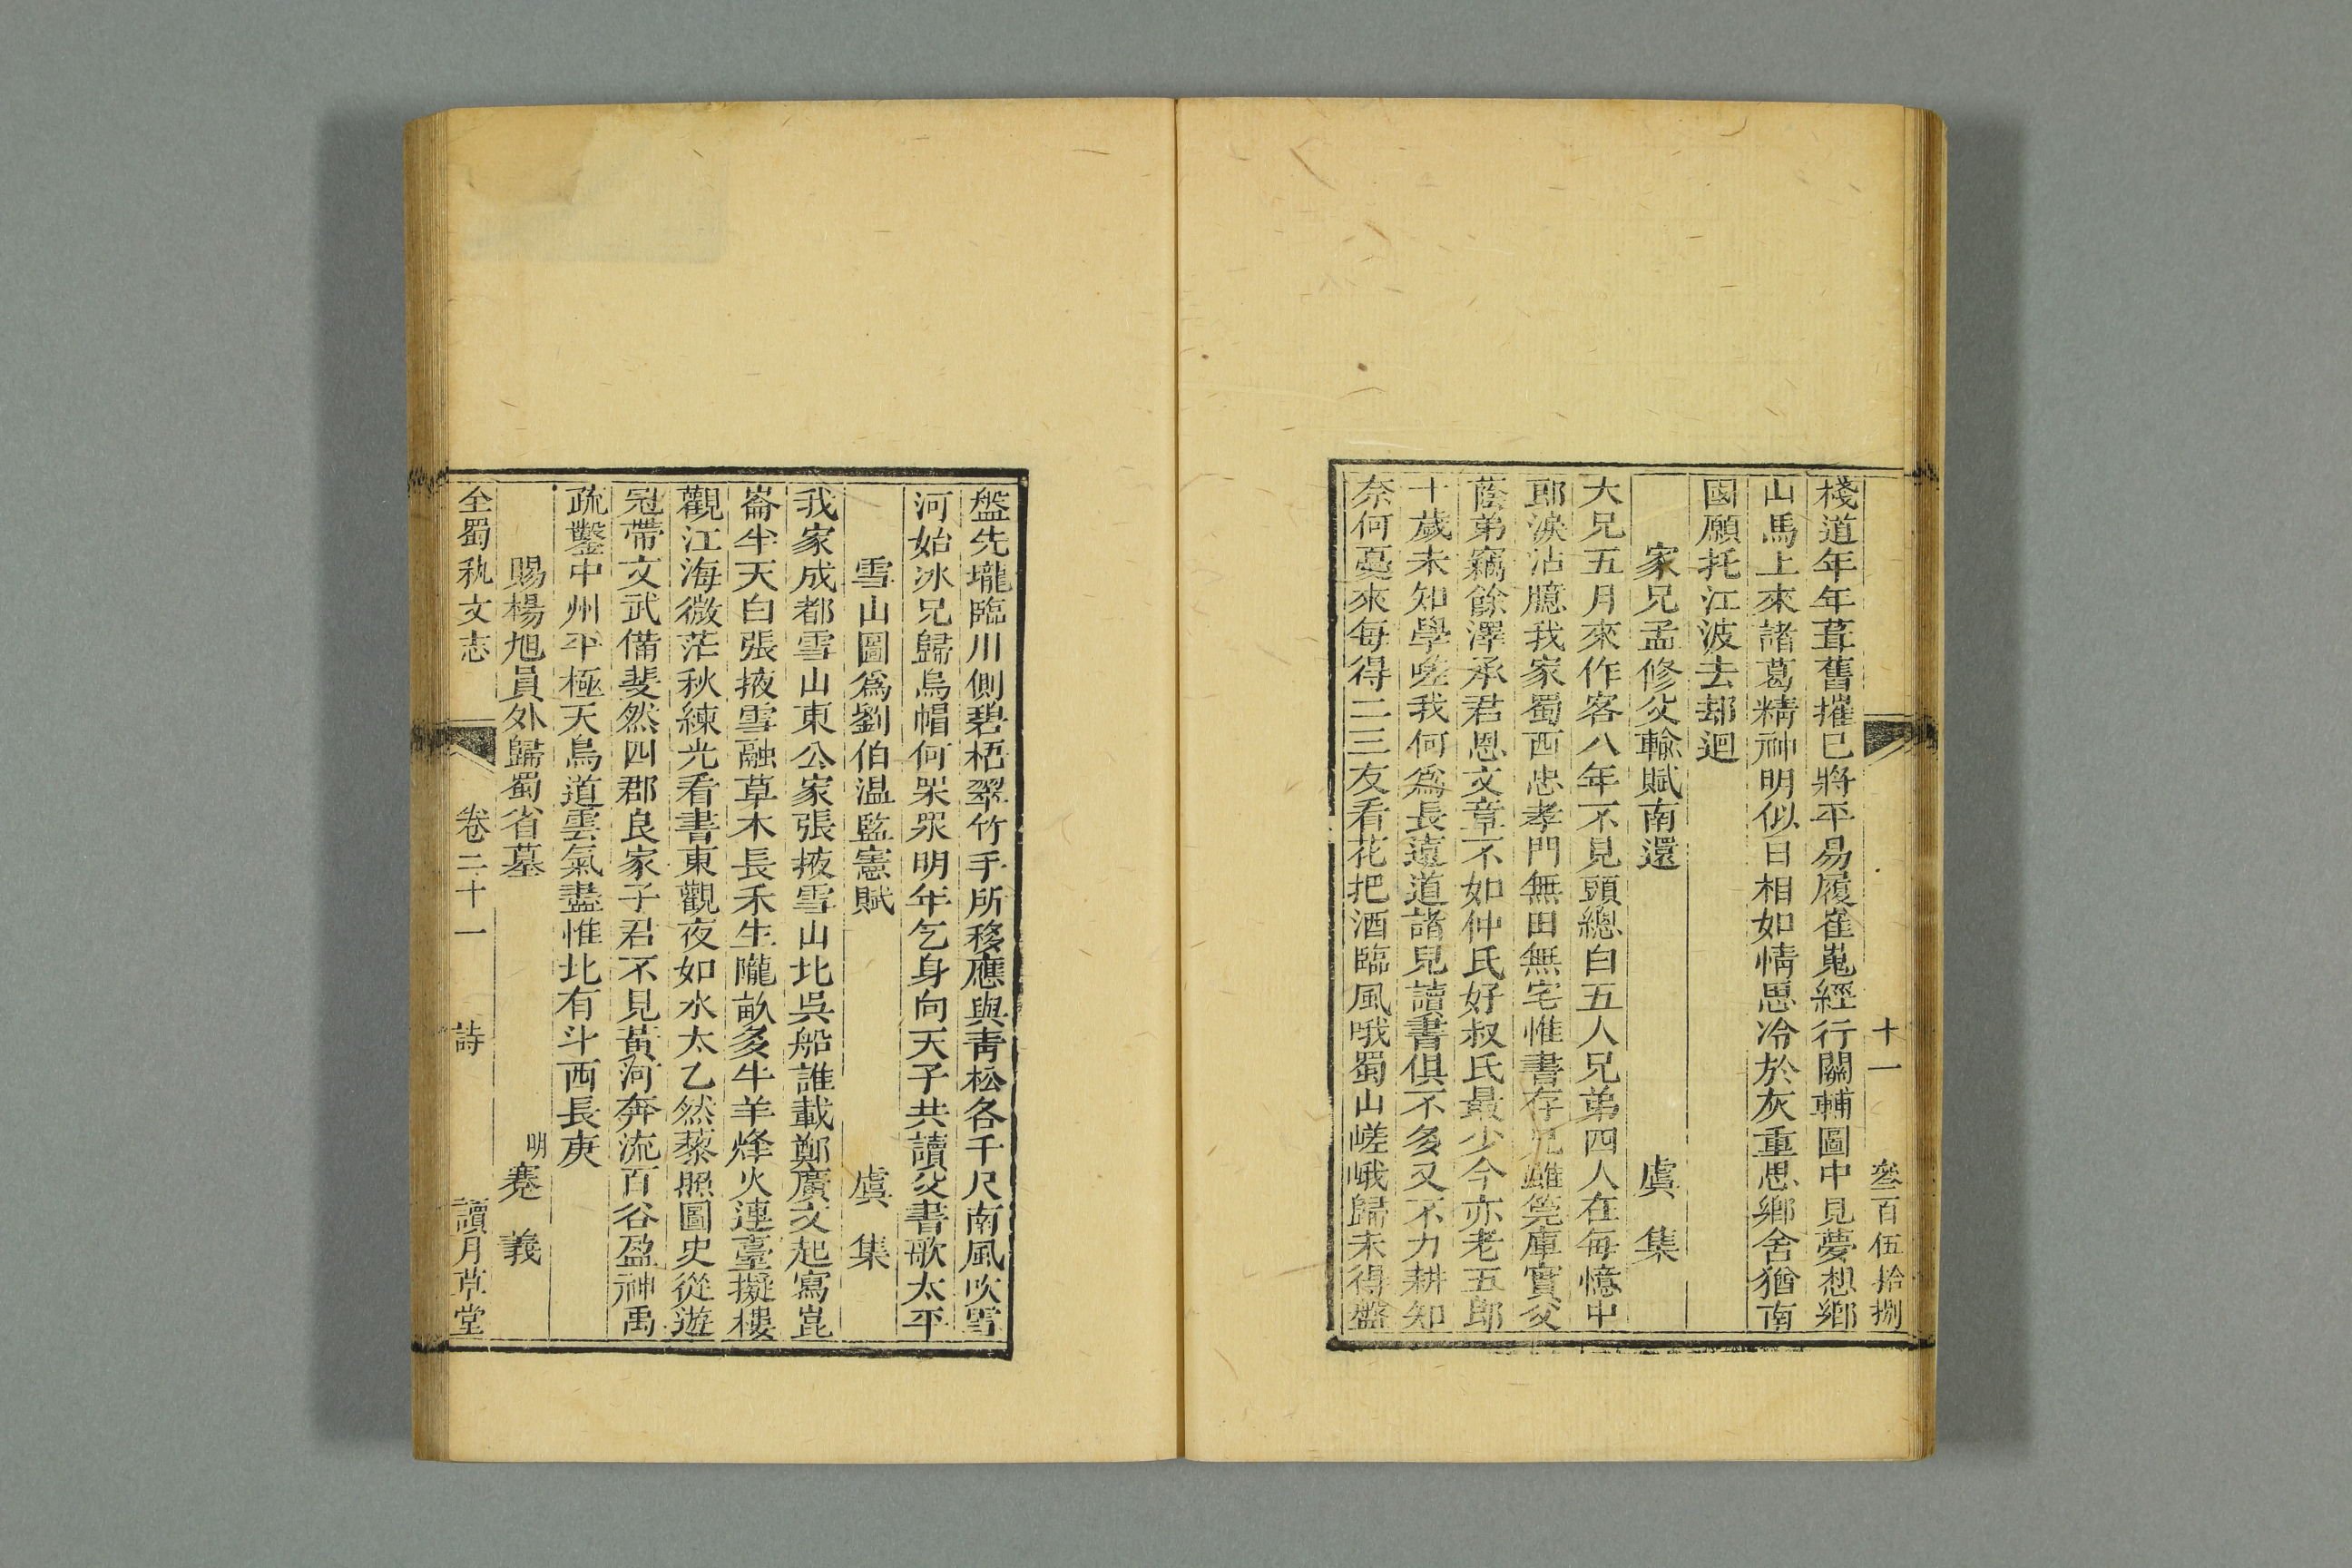 十一 叄百伍拾捌
棧道年年葺舊摧已將平易履崔嵬經行關輔圖中見夢想鄉
山馬上來諸葛精神明似日相如情思冷於灰重思鄉舍猶南
國願托江波去却迴
家兄孟修父輸賦南還 虞集
大兄五月來作客八年不見頭總白五人兄弟四人在每憶中
郎淚沾臆我家蜀西忠孝門無田無宅惟書存兄雖筦庫實父
蔭弟竊餘澤承君恩文章不如仲氏好叔氏最少今亦老五郎
十歲未知學嗟我何爲長遠道諸兒讀書俱不多又不力耕知
奈何憂來每得二三友看花把酒臨風哦蜀山嵯峨歸未得盤
盤先壠臨川側碧梧翠竹手所移應與靑松各千尺南風吹雪
河始冰兄歸烏帽何眾眾明年乞身向天子共讀父書歌太平
雪山圖爲劉伯温監憲賦 虞集
我家成都雪山東公家張掖雪山北吳船誰載鄭廣文起寫崑
崙半天白張掖雪融草木長禾生隴畝多牛羊烽火連臺擬樓
觀江海微茫秋練光看書東觀夜如水太乙然藜照圖史從遊
冠帶文武備斐然四郡良家子君不見黃河奔流百谷盈神禹
疏鑿中州平極天鳥道雲氣盡惟北有斗西長庚
賜楊旭員外歸蜀省墓 明蹇義
全蜀秇文志 卷二十一 詩 讀月草堂